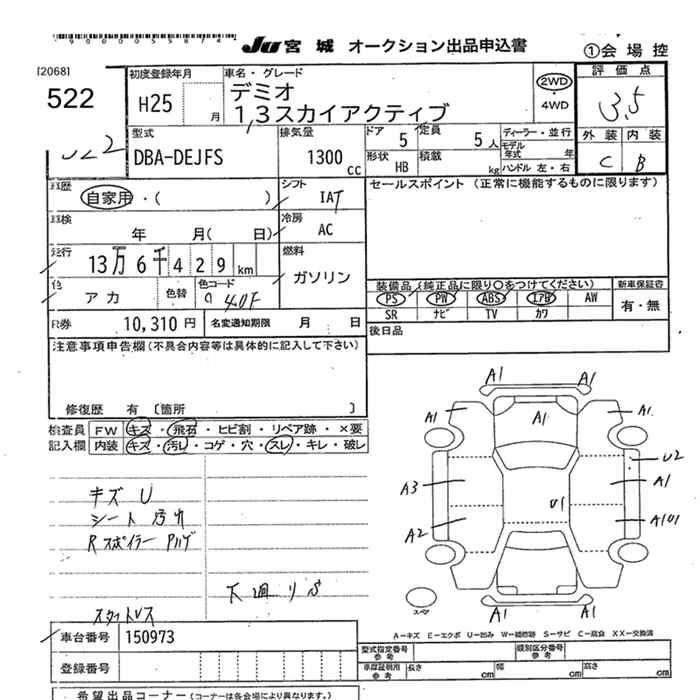 9000055874
JU 宮城 オークション出品申込書
①会場控
[2068]
522
初度登録年月
H25 月
車名・グレード
デミオ
1,3スカイアクティブ
2WD
・
4WD
評価点
3.5
外装 内装
C B
型式
DBA-DEJFS
排気量
1300 cc
ドア 5
定員 5人
形状 HB
積載 kg
ディーラー・並行
モデル年式 年
ハンドル 左・右
車歴
自家用・( )
シフト
IAT
セールスポイント (正常に機能するものに限ります)
車検
年 月( 日)
冷房
AC
走行
13万6千429 km
燃料
ガソリン
色
アカ
色替
色コード
40F
装備品 (純正品に限り○をつけてください)
新車保証書
PS PW ABS エアB AW
SR ナビ TV カワ
有・無
R券 10,310円
名変通知期限 月 日
後日品
注意事項申告欄(不具合内容等は具体的に記入して下さい)
修復歴 有 [箇所 ]
検査員 FW キズ・飛石・ヒビ割・リペア跡・×要
記入欄 内装 キズ・汚レ・コゲ・穴・スレ・キレ・破レ
キズ U
シート 汚れ
Rスポイラー Pハゲ
下廻りS
A1 A1
A1 A1 A1
U2
A3 A1
U1
A2 A101
A1 A1
スペア
A－キズ E－エクボ U－凹み W－補修跡 S－サビ C－腐食 XX－交換済
車台番号 150973
登録番号
型式指定番号 参考
類別区分番号 参考
車庫証明用 参考 長さ 幅 高さ
cm cm cm
希望出品コーナー(コーナーは各会場により異なります。)